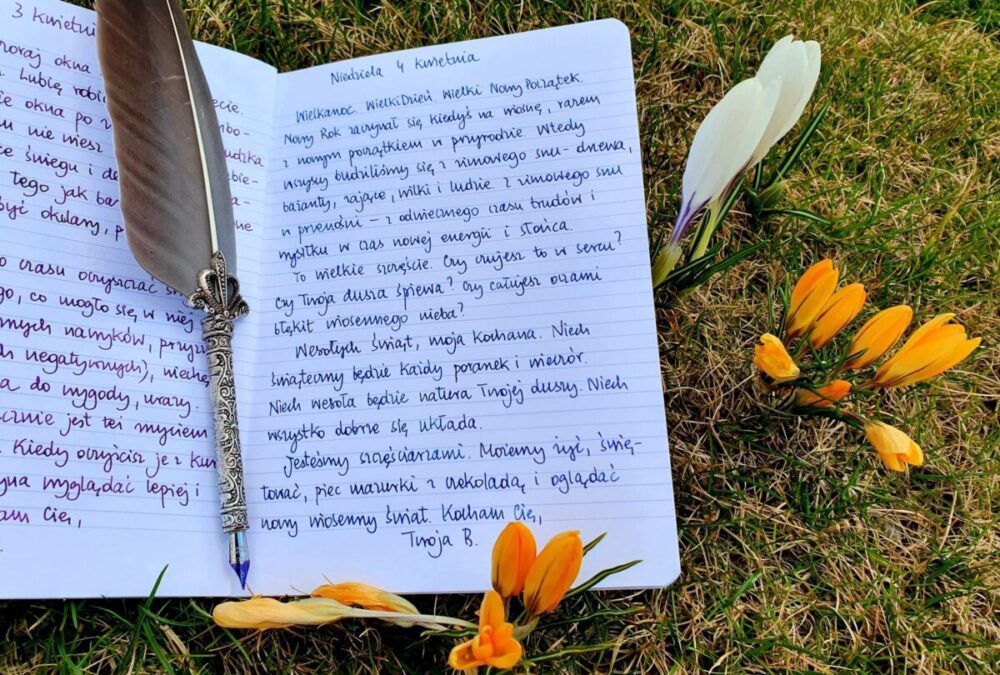 3 kwietni
okna
Lubię robi
ie okna po
nie
ce śniegu i
tego jak
być okulary, p
czasu oczyszczać
go, co mogło się w niej
nych nawyków, przyz
h negatywnych), niechę
a do wygody, urazy.
cznie jest też myciem
. Kiedy oczyścisz je z kur
yna wyglądać lepiej i
am Cię,
Niedziela 4 kwietnia
Wielkanoc. WielkiDzień. Wielki Nowy Początek.
Nowy Rok zaczynał się kiedyś na wiosnę, razem
z nowym początkiem w przyrodzie. Wtedy
wszyscy budziliśmy się z zimowego snu - drzewa,
bażanty, zające, wilki i ludzie. Z zimowego snu
w przenośni – z odwiecznego czasu trudów i
mysłku w czas nowej energii i słońca.
To wielkie szczęście. Czy czujesz to w sercu?
Czy Twoja dusza śpiewa? Czy całujesz oczami
błękit wiosennego nieba?
Wesołych Świąt, moja Kochana. Niech
świąteczny będzie każdy poranek i wieczór.
Niech wesoła będzie natura Twojej duszy. Niech
wszystko dobrze się układa.
Jesteśmy szczęściarzami. Możemy żyć, świę-
tować, piec mazurki z czekoladą i oglądać
nowy wiosenny świat. Kocham Cię,
Twoja B.